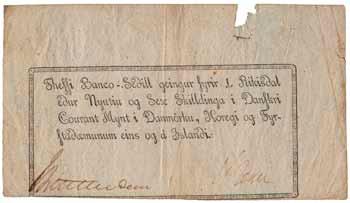 Thessi Banco-Sedill geingur fyrir 1. Rikisdal
edur Nyutiu og Sexe Skilldinga i Danskri
Courant Mynt i Danmörku, Noregi og Fyr-
stadæmunum eins og á Islandi.